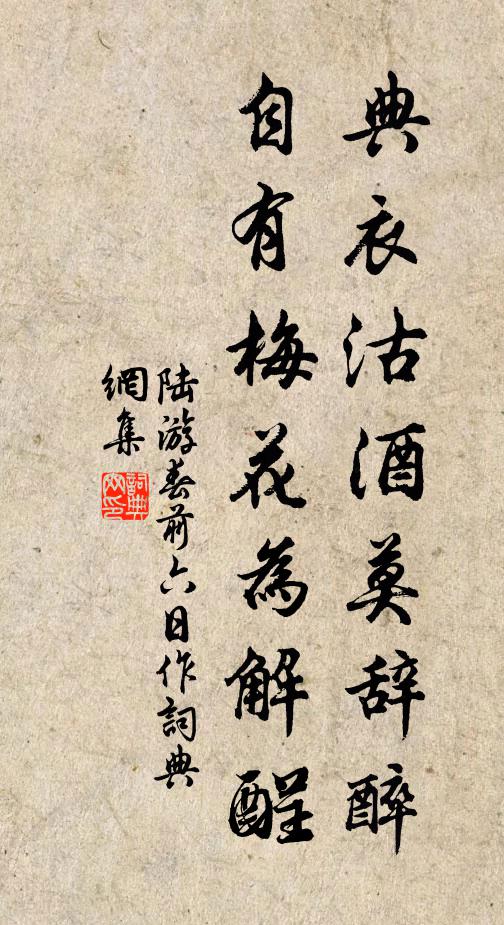 典衣沽酒莫辞醉
自有梅花為解酲
陆游春前六日作詞典
網集
詞典
网印